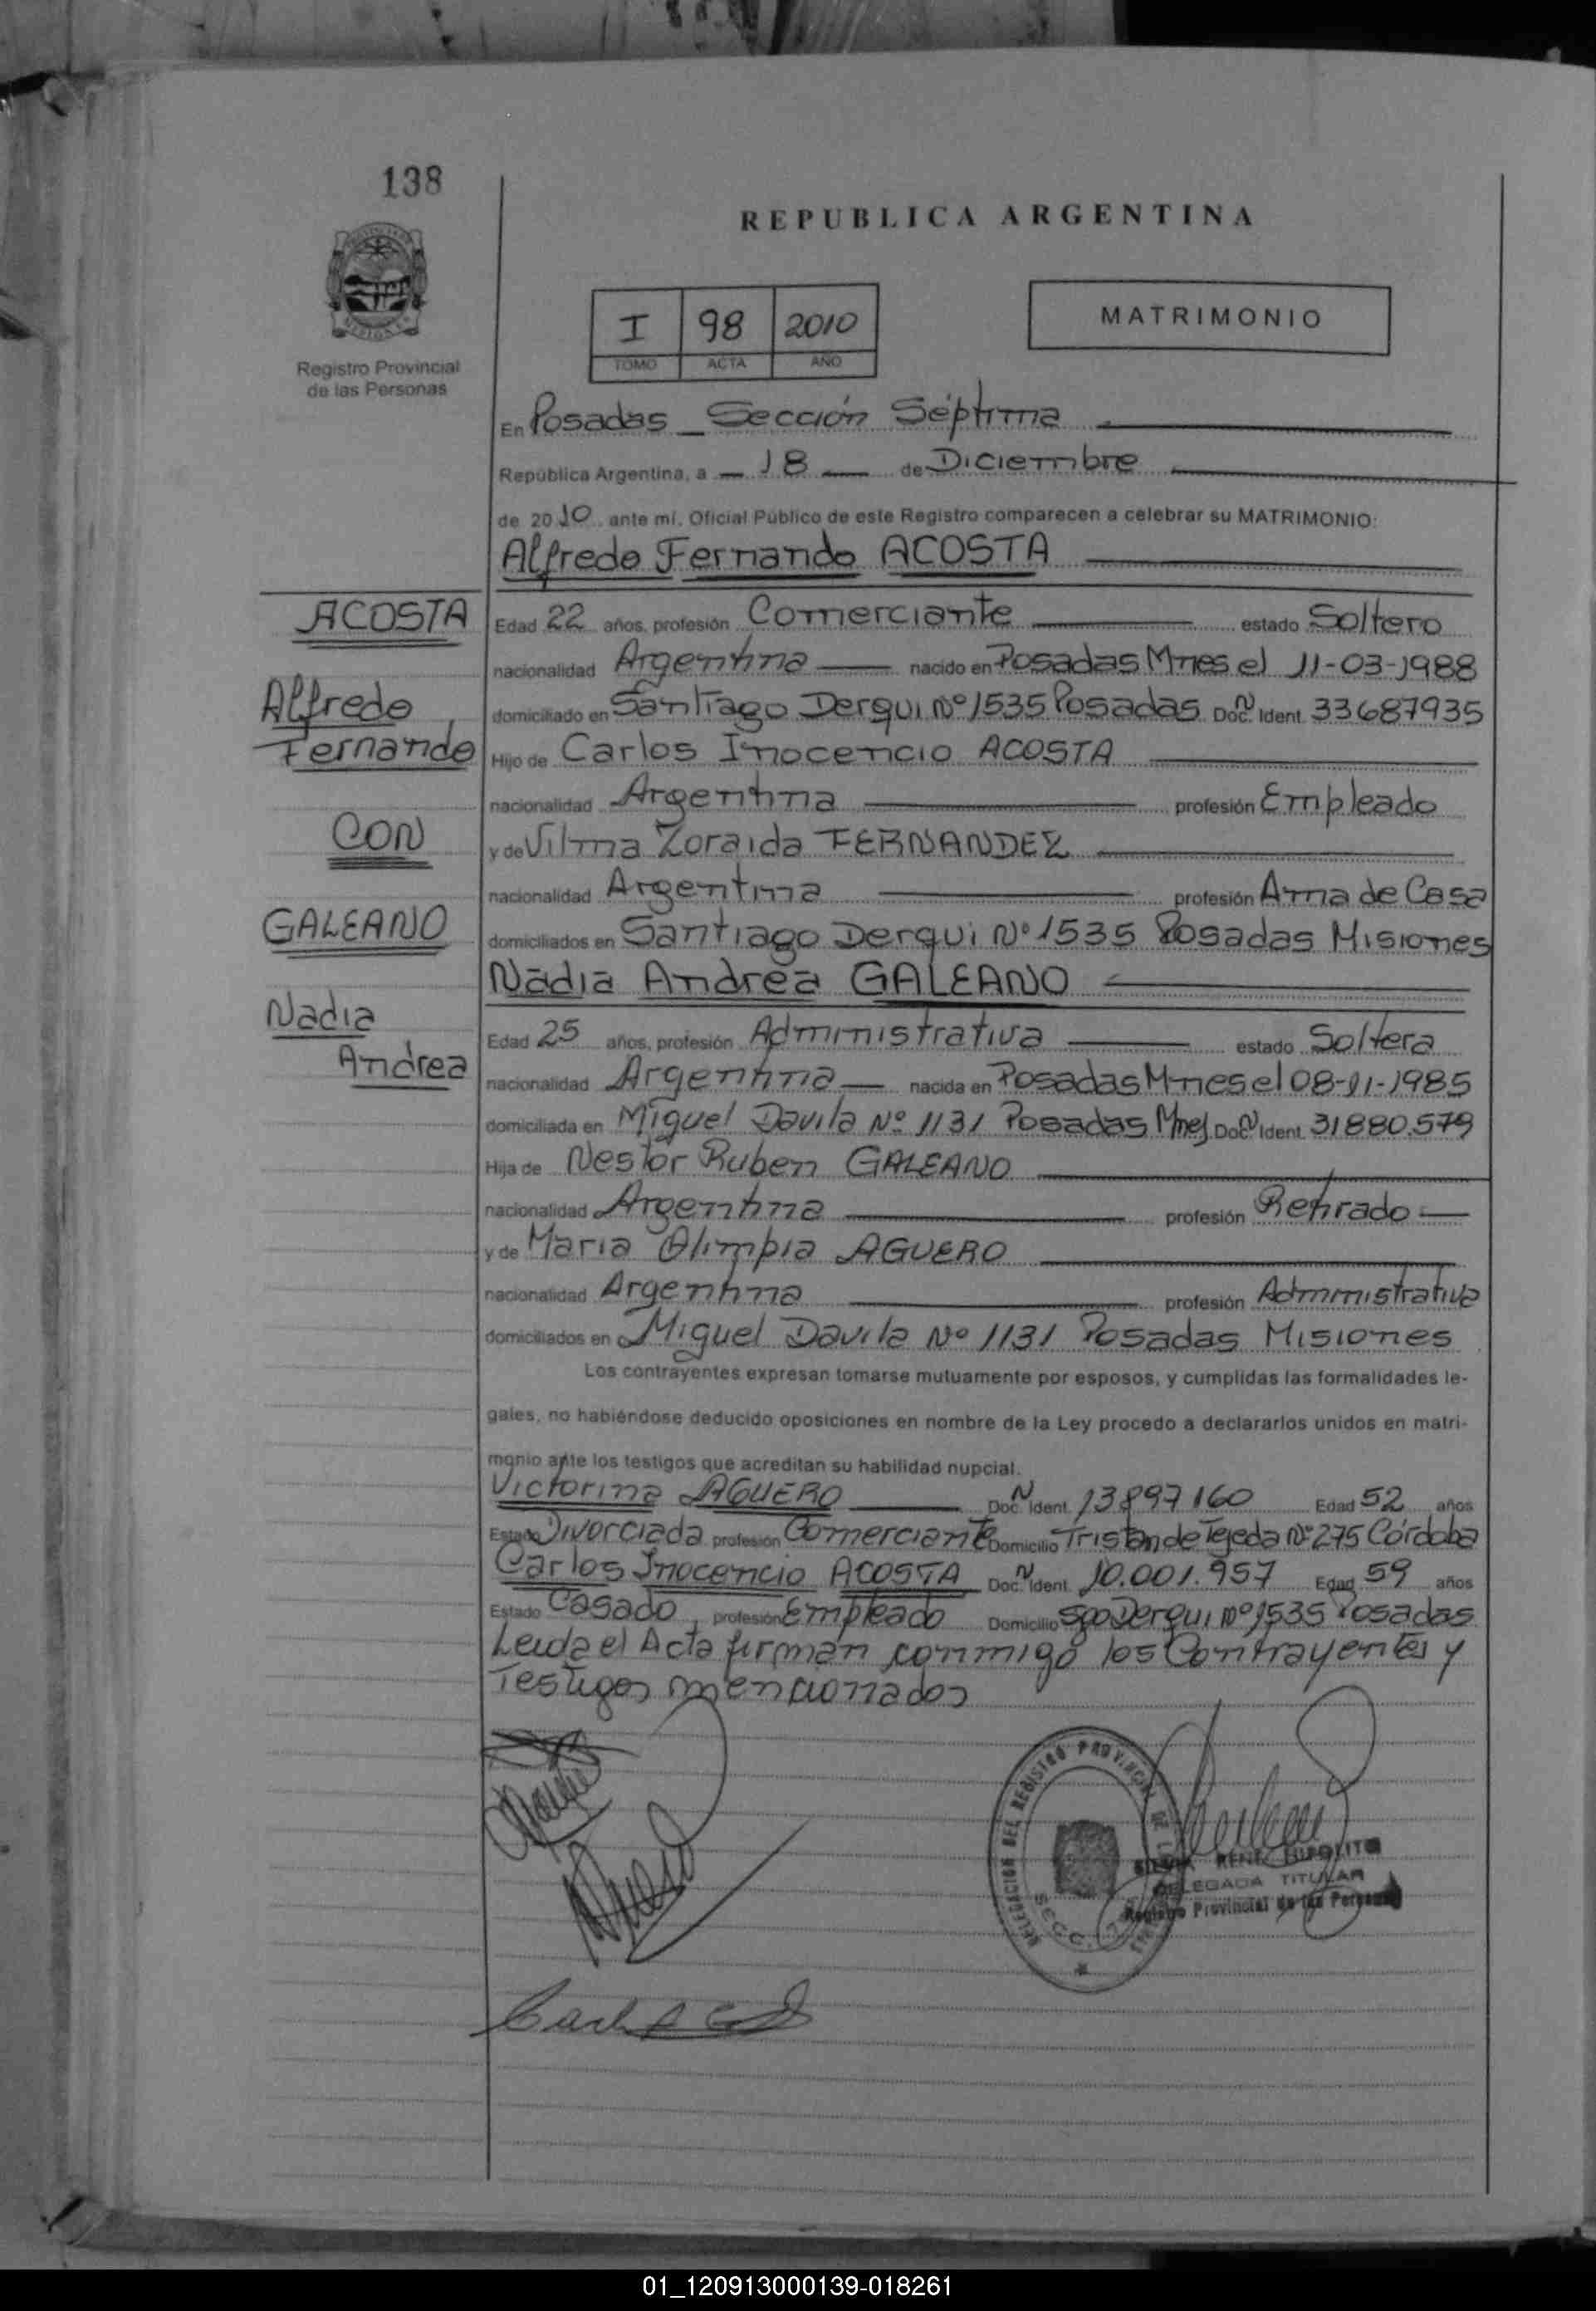 138
REPUBLICA ARGENTINA
I 98 2010
TOMO ACTA AÑO
MATRIMONIO
Registro Provincial
de las Personas
En Posadas _ Sección Séptima
República Argentina, a 18 de Diciembre
de 2010 ante mí, Oficial Público de este Registro comparecen a celebrar su MATRIMONIO:
Alfredo Fernando ACOSTA
ACOSTA
Alfredo
Fernando
CON
GALEANO
Nadia
Andrea
Edad 22 años, profesión Comerciante estado Soltero
nacionalidad Argentina nacido en Posadas Mnes el 11-03-1988
domiciliado en Santiago Derqui Nº 1535 Posadas Doc. N Ident. 33687935
Hijo de Carlos Inocencio ACOSTA
nacionalidad Argentina profesión Empleado
y de Vilma Zoraida FERNANDEZ
nacionalidad Argentina profesión Ama de Casa
domiciliados en Santiago Derqui Nº 1535 Posadas Misiones
Nadia Andrea GALEANO
Edad 25 años, profesión Administrativa estado Soltera
nacionalidad Argentina nacida en Posadas Mnes el 08-11-1985
domiciliada en Miguel Davila Nº 1131 Posadas Mnes Doc. N Ident. 31880.579
Hija de Nestor Ruben GALEANO
nacionalidad Argentina profesión Retirado
y de Maria Olimpia AGUERO
nacionalidad Argentina profesión Administrativa
domiciliados en Miguel Davila Nº 1131 Posadas Misiones
Los contrayentes expresan tomarse mutuamente por esposos, y cumplidas las formalidades le-
gales, no habiéndose deducido oposiciones en nombre de la Ley procedo a declararlos unidos en matri-
monio ante los testigos que acreditan su habilidad nupcial.
Victorina AGUERO Doc. N Ident. 13897160 Edad 52 años
Estado Divorciada profesión Comerciante Domicilio Tristan de Tejeda Nº 275 Córdoba
Carlos Inocencio ACOSTA Doc. N Ident. 10.001.957 Edad 59 años
Estado Casado profesión Empleado Domicilio Sgo Derqui Nº 1535 Posadas
Leida el Acta firman conmigo los Contrayentes y
Testigos mencionados
DELEGACION DEL REGISTRO PROVINCIAL DE
SECC. 7
DELEGADA TITULAR
Registro Provincial de las Personas
01_120913000139-018261